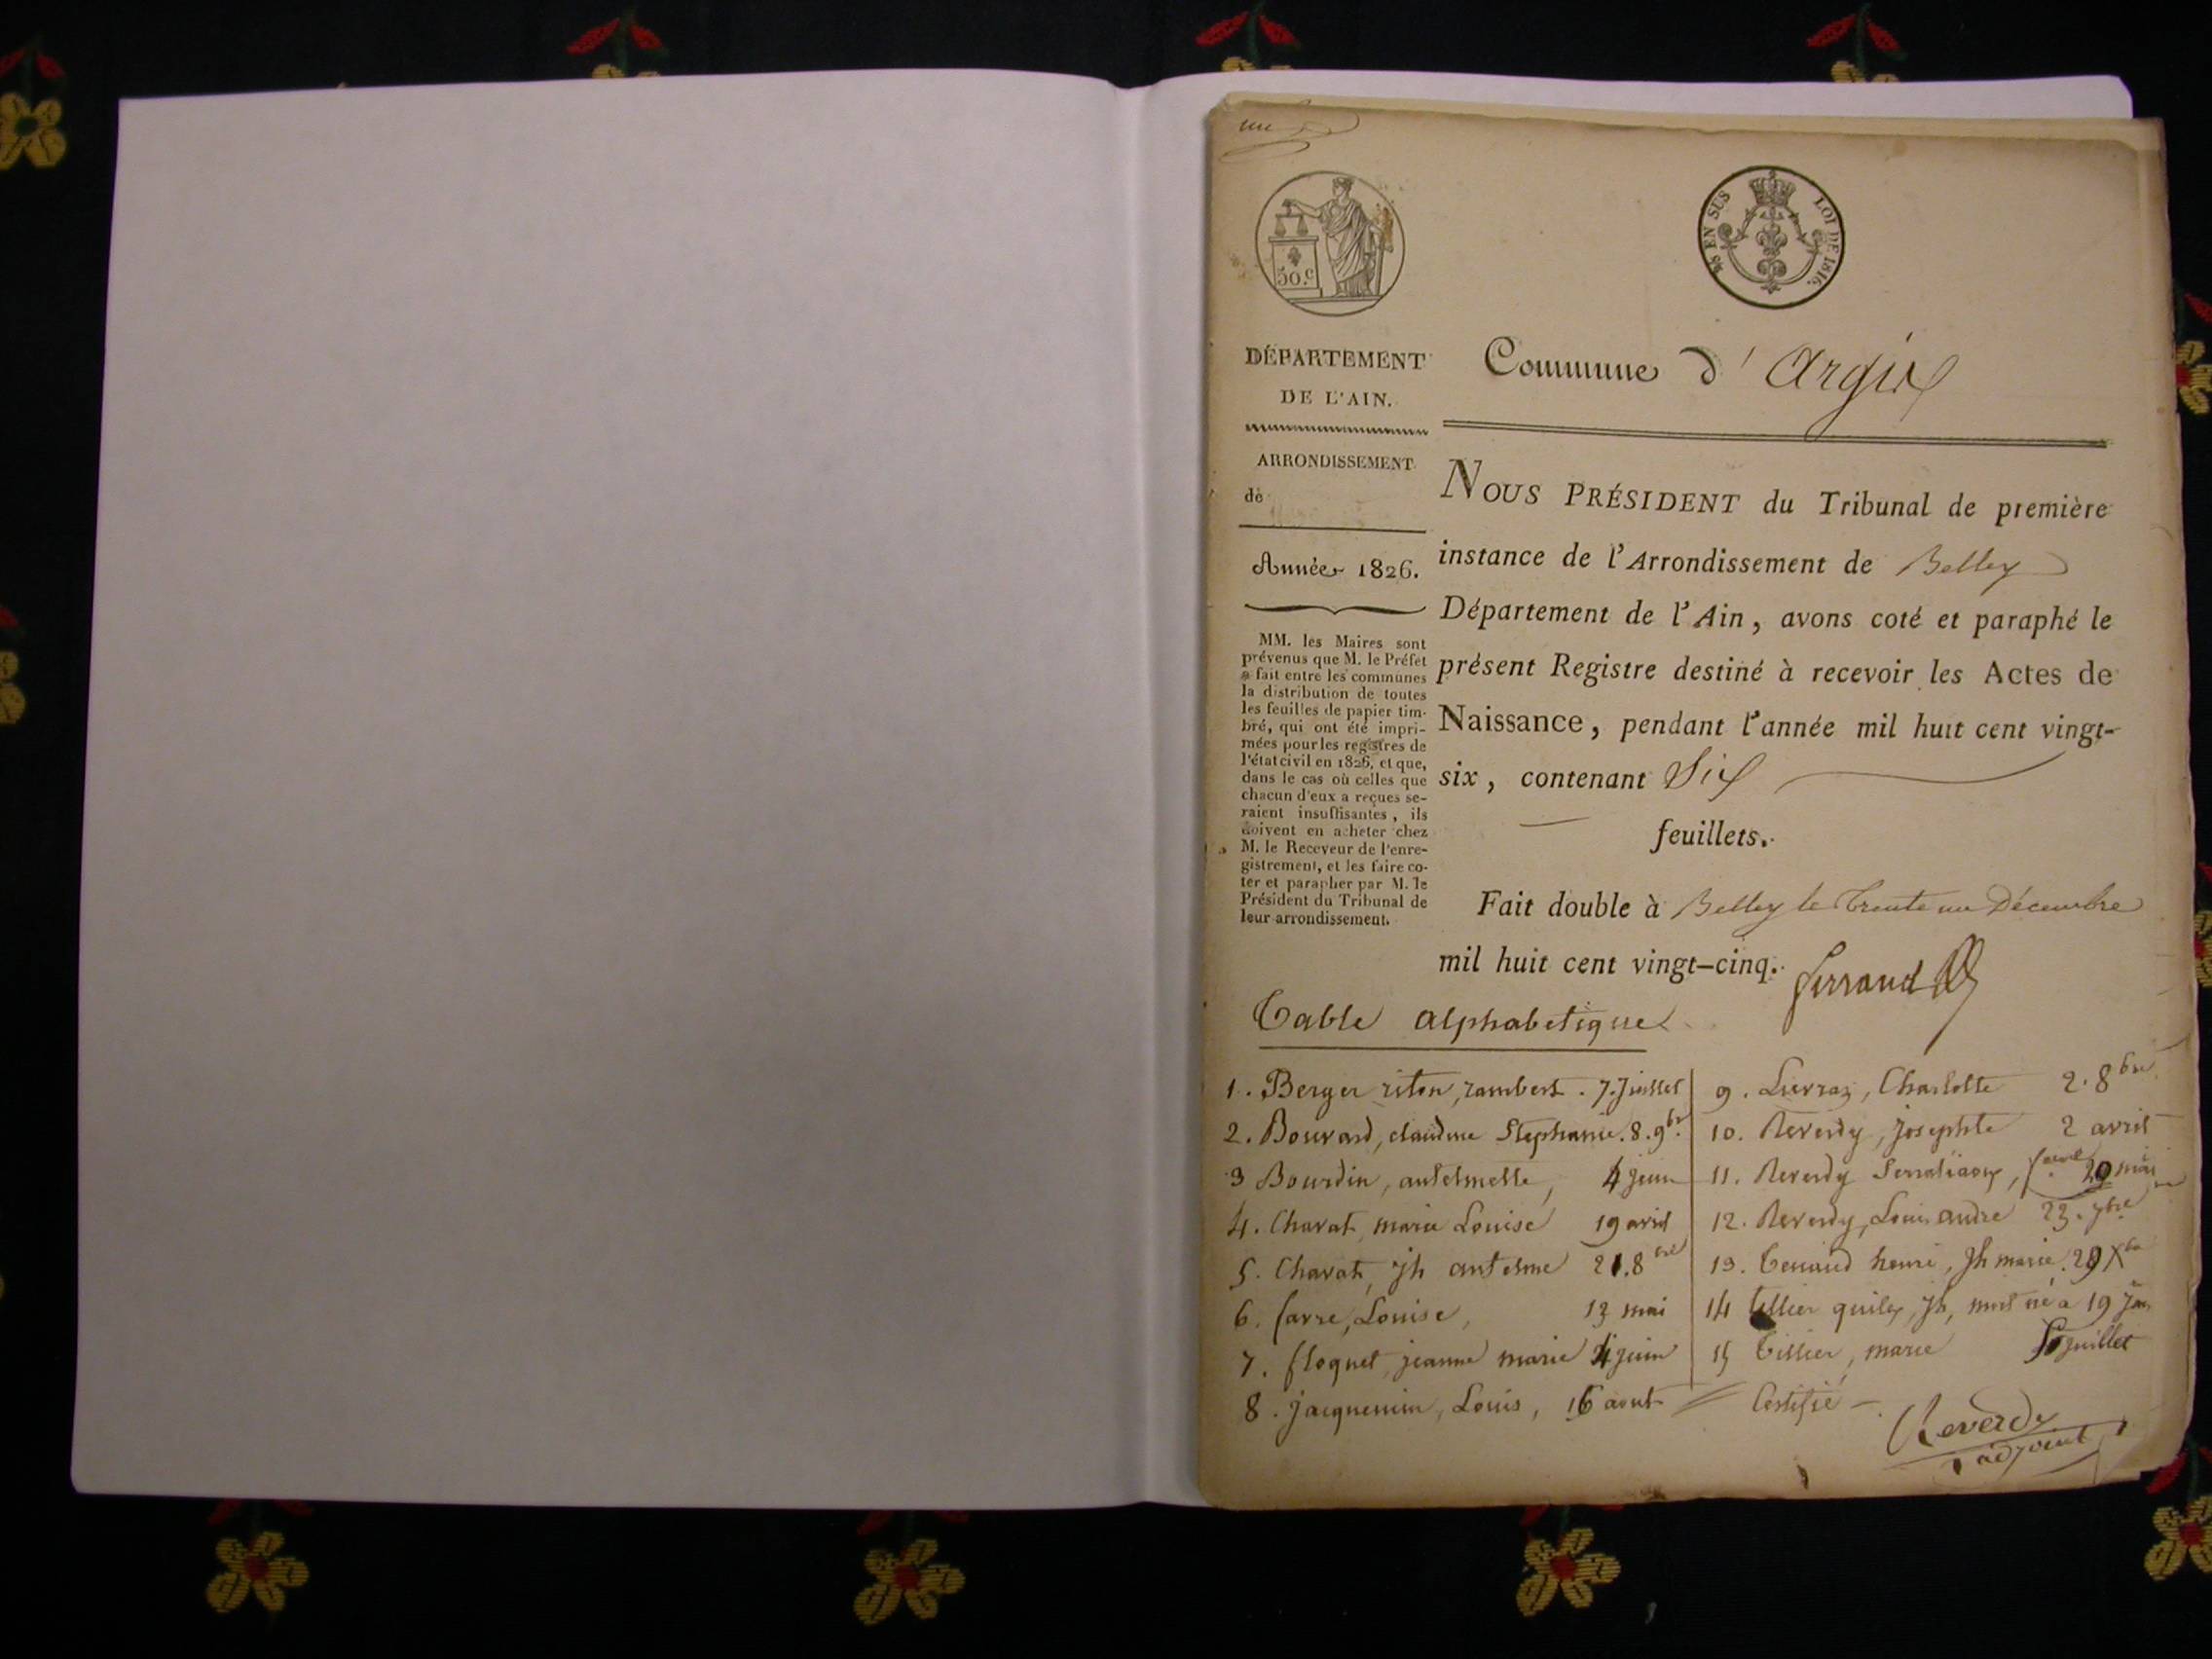 un
50.c
EN SUS
LOI DE 1816.
DÉPARTEMENT
DE L'AIN.
ARRONDISSEMENT
de
Année 1826.
MM. les Maires sont
prévenus que M. le Préfet
a fait entre les communes
la distribution de toutes
les feuilles de papier tim-
bré, qui ont été impri-
mées pour les registres de
l'état civil en 1826, et que,
dans le cas où celles que
chacun d'eux a reçues se-
raient insuffisantes, ils
doivent en acheter chez
M. le Receveur de l'enre-
gistrement, et les faire co-
ter et parapher par M. le
Président du Tribunal de
leur arrondissement.
Commune d'Argis
NOUS PRÉSIDENT du Tribunal de première
instance de l'Arrondissement de Belley
Département de l'Ain, avons coté et paraphé le
présent Registre destiné à recevoir les Actes de
Naissance, pendant l'année mil huit cent vingt-
six, contenant Six
feuillets.
Fait double à Belley le trente un Décembre
mil huit cent vingt-cinq.
Ferrand
Table alphabetique
1. Berger riton, rambert. 7. Juillet
2. Bouvard, claudine Stephanie. 8. 9bre
3 Bourdin, antelmette, 4 juin
4. Charat, marie Louise 19 avril
5. Charat, jh antelme 21. 8bre
6. farre, Louise, 13 mai
7. floquet, jeanne marie 4 juin
8. jacquemin, Louis, 16 aout
9. Lievraz, Charlotte 2. 8bre
10. Reverdy, josephte 2 avril
11. Reverdy 20 mai
12. Reverdy, Louis andré 23. 7bre
13. henri, Jh marie. 29 Xbre
14 tillier jh, mort né a 19
15 tillier, marie juillet
Certifié
Reverdy
adjoint